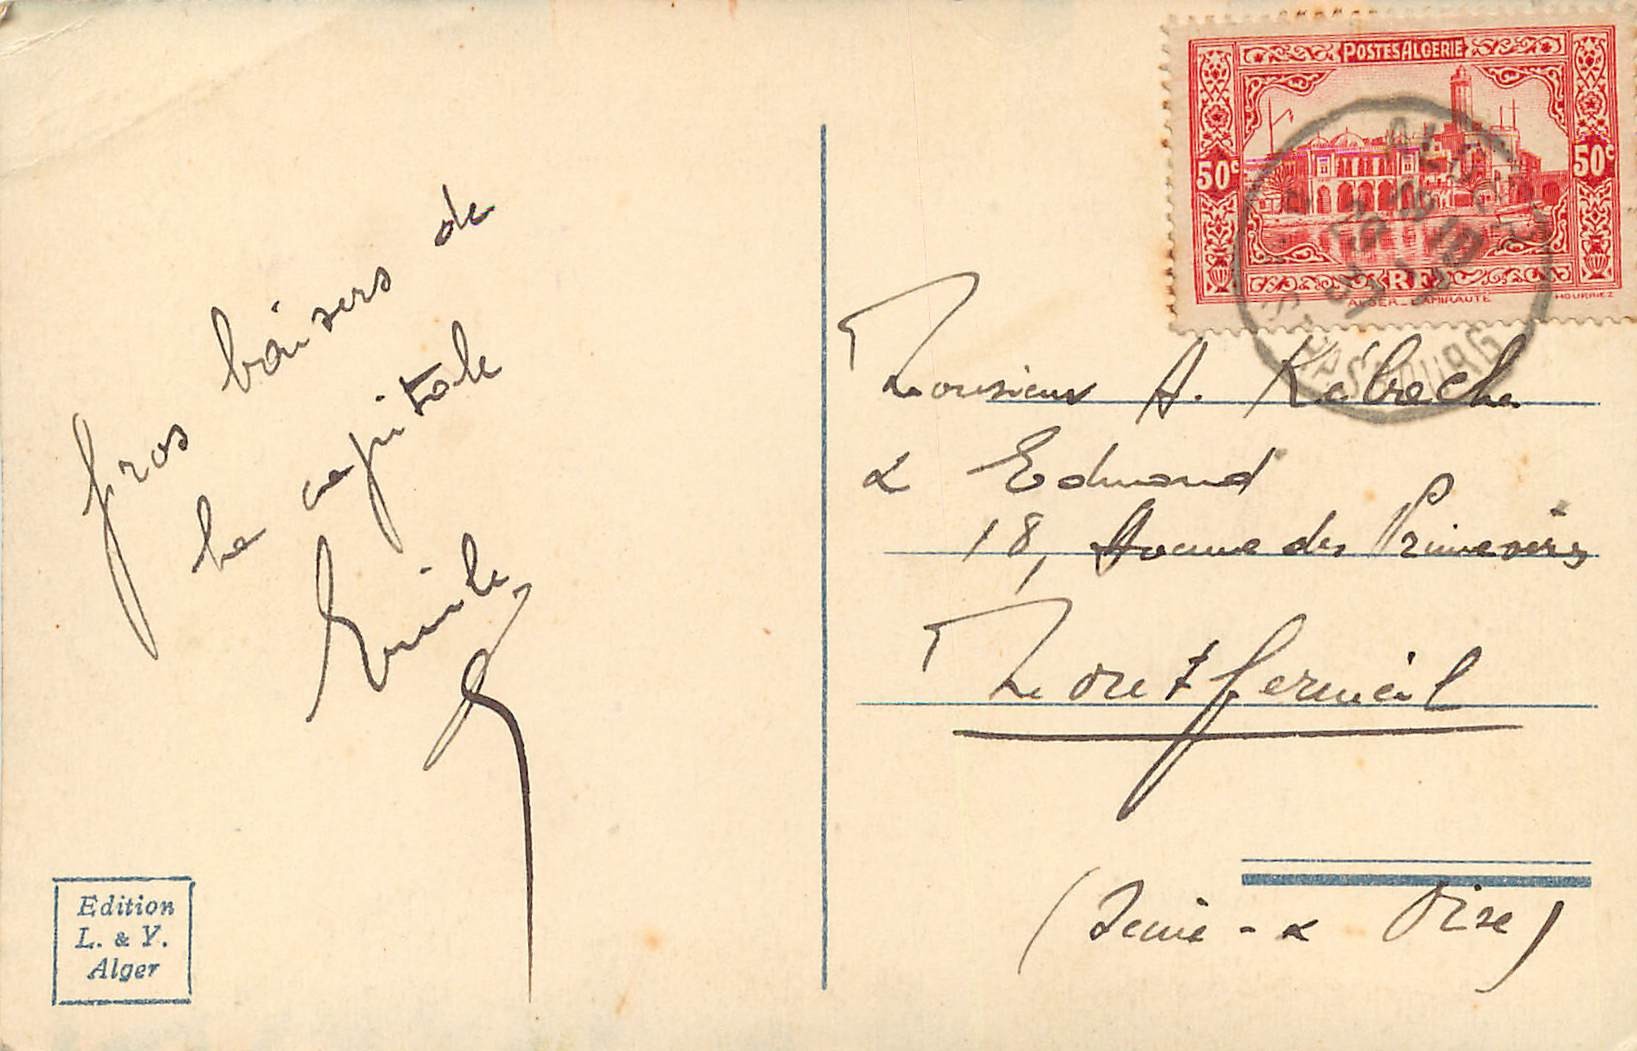 gros baisers de
la capitale
Emile
Edition
L. & Y.
Alger
POSTES ALGERIE
50c
50c
RF
ALGER _ L'AMIRAUTÉ
HOURRIEZ
ALGER
STRASBOURG
Monsieur A. Kébreche
& Edmond
18, Avenue des Primevères
Montfermeil
(Seine-& Oise)